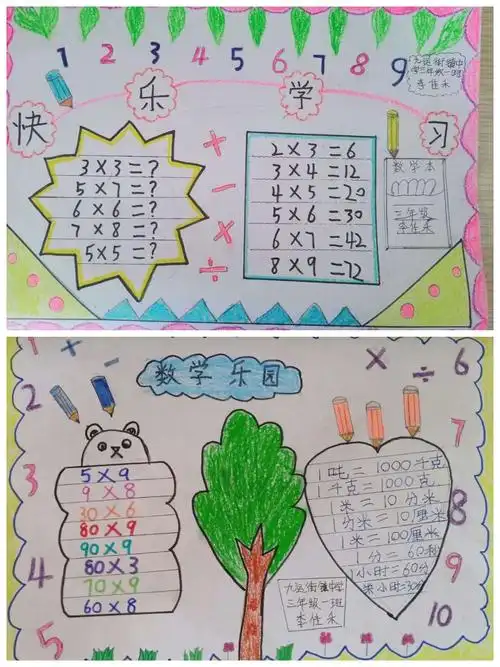 1 2 3 4 5 6 7 8 9
九运街镇中
学三年级一班
李佳禾
快乐学习
3×3=?
5×7=?
6×6=?
7×8=?
5×5=?
+
-
×
÷
2×3=6
3×4=12
4×5=20
5×6=30
6×7=42
8×9=72
数学本
三年级
李佳禾
1 + -
数学乐园
× ÷ 6
2
7
3
8
4
9
5
10
5×9
9×8
30×6
80×9
90×9
80×3
70×9
60×8
1吨=1000千克
1千克=1000克
1米=10分米
1分米=10厘米
1米=100厘米
1分=60秒
1小时=60分
半小时=30分
九运街镇中学
三年级一班
李佳禾